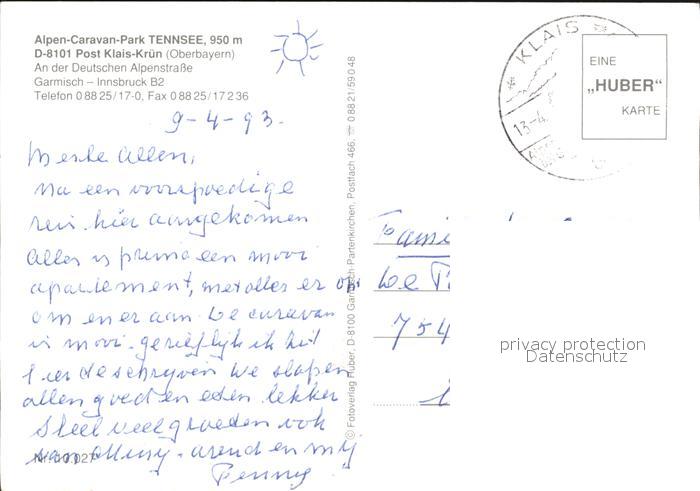 Alpen-Caravan-Park TENNSEE, 950 m
D-8101 Post Klais-Krün (Oberbayern)
An der Deutschen Alpenstraße
Garmisch – Innsbruck B2
Telefon 0 88 25/17-0, Fax 0 88 25/1 72 36
9-4-93.
Beste Allen,
Na een voorspoedige
reis hier aangekomen
alles is prima een mooi
apartement, met alles er op
en er aan. De caravan
is mooi. gerieflijk ik
We slapen
allen goed en eten lekker
veel groeten ook
arend en my
Penny
© Fotoverlag Huber, D-8100 Garmisch-Partenkirchen, Postfach 466, ☏ 0 88 21/5 90 48
KLAIS
13-4.
EINE
„HUBER"
KARTE
Fami
De
754
privacy protection
Datenschutz